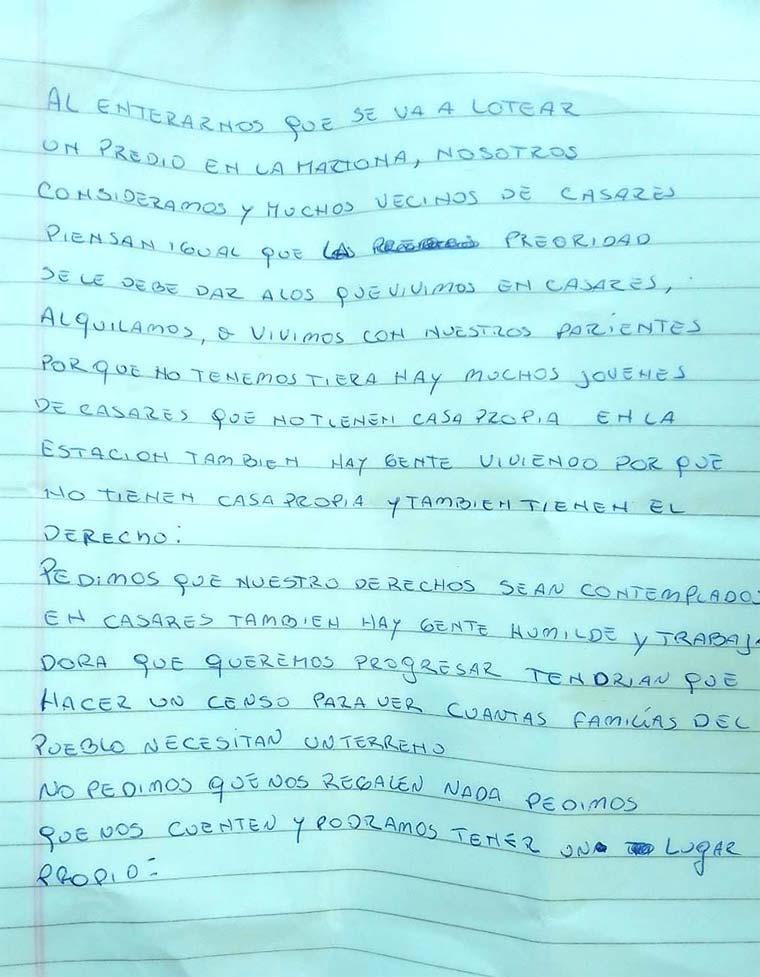 AL ENTERARNOS QUE SE VA A LOTEAR
UN PREDIO EN LA MARTONA, NOSOTROS
CONSIDERAMOS Y MUCHOS VECINOS DE CASARES
PIENSAN IGUAL QUE PREORIDAD
SE LE DEBE DAR ALOS QUE VIVIMOS EN CASARES,
ALQUILAMOS, O VIVIMOS CON NUESTROS PARIENTES
PORQUE NO TENEMOS TIERA HAY MUCHOS JOVENES
DE CASARES QUE NO TIENEN CASA PROPIA EN LA
ESTACION TAMBIEN HAY GENTE VIVIENDO POR QUE
NO TIENEN CASA PROPIA Y TAMBIEN TIENEN EL
DERECHO:
PEDIMOS QUE NUESTRO DERECHOS SEAN CONTEMPLADOS
EN CASARES TAMBIEN HAY GENTE HUMILDE Y TRABAJA
DORA QUE QUEREMOS PROGRESAR TENDRIAN QUE
HACER UN CENSO PARA VER CUANTAS FAMILIAS DEL
PUEBLO NECESITAN UN TERRENO
NO PEDIMOS QUE NOS REGALEN NADA PEDIMOS
QUE NOS CUENTEN Y PODRAMOS TENER UN LUGAR
PROPIO=